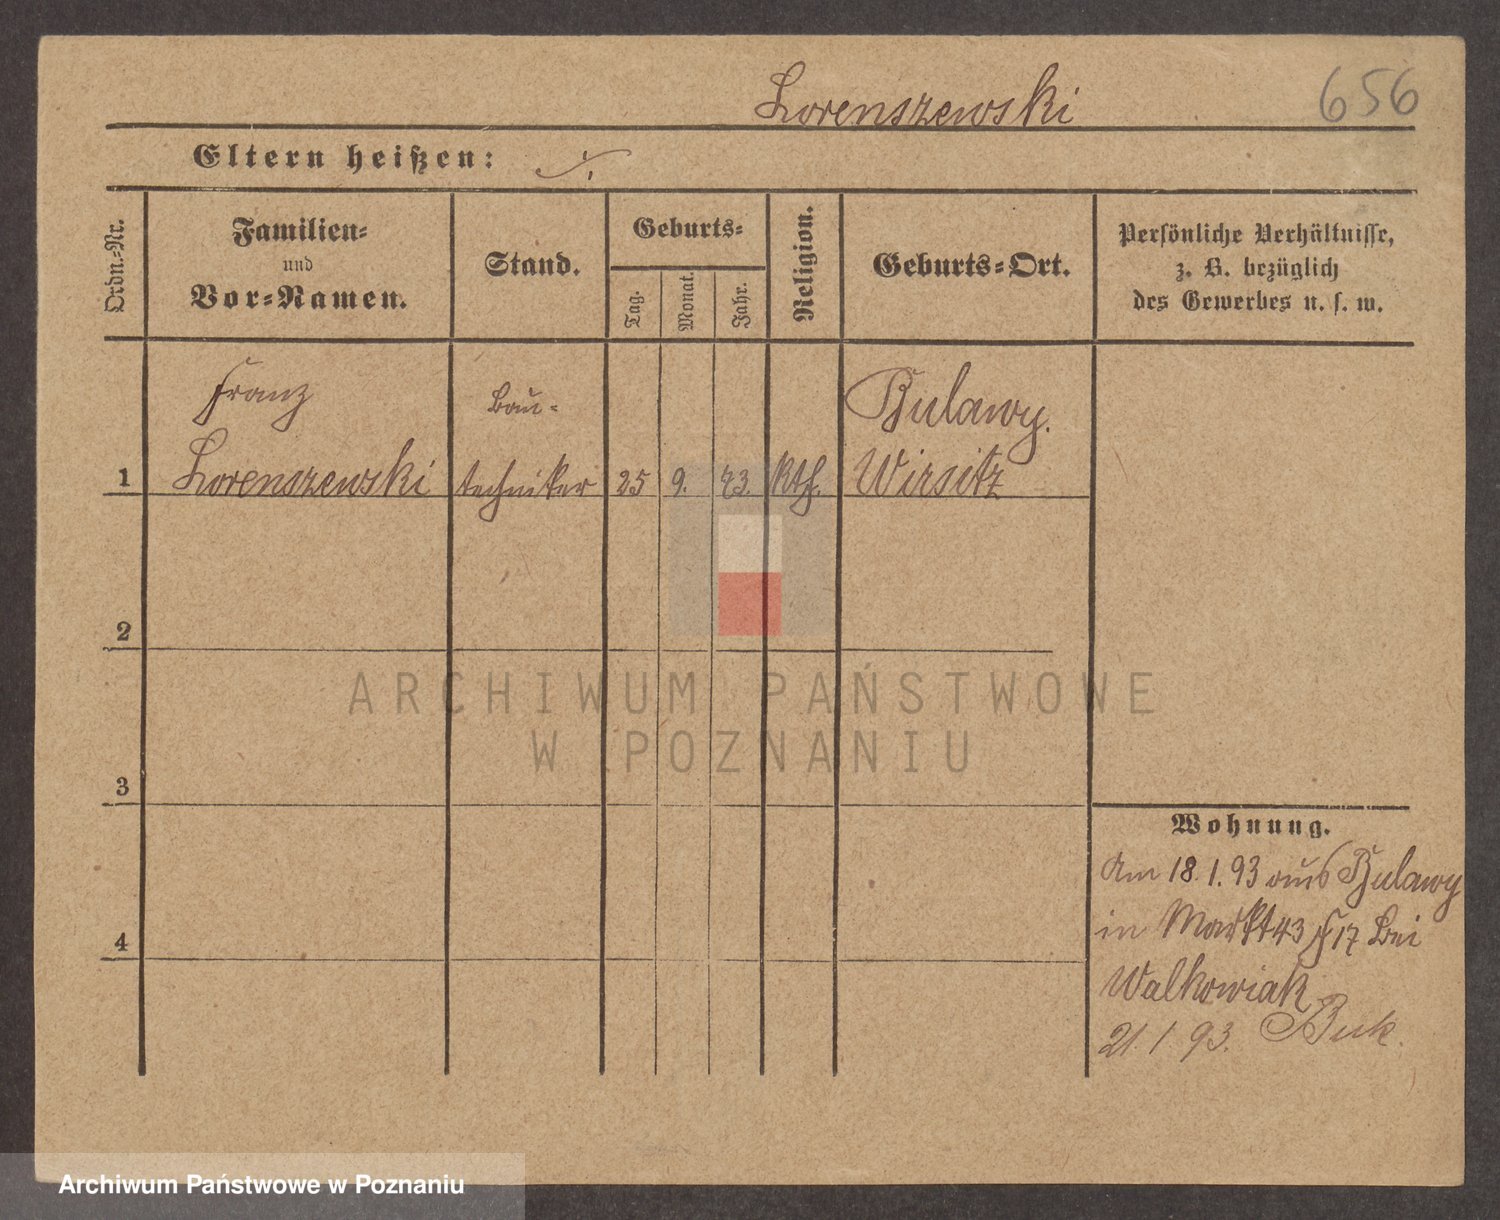 Lorenszewski
656
Eltern heißen: ./.
Ordn.-Nr.
Familien-
und
Vor-Namen.
Stand.
Geburts-
Tag.
Monat.
Jahr.
Religion.
Geburts-Ort.
Persönliche Verhältnisse,
z. B. bezüglich
des Gewerbes u. s. w.
Franz
Bau-
Bulawy.
1 Lorenszewski techniker 25 9. 73. kth. Wirsitz
2
3
4
Wohnung.
Am 18.1.93 aus Bulawy
in Markt 43 17 bei
Walkowiak
21.1 93. Buk.
ARCHIWUM PAŃSTWOWE
W POZNANIU
Archiwum Państwowe w Poznaniu